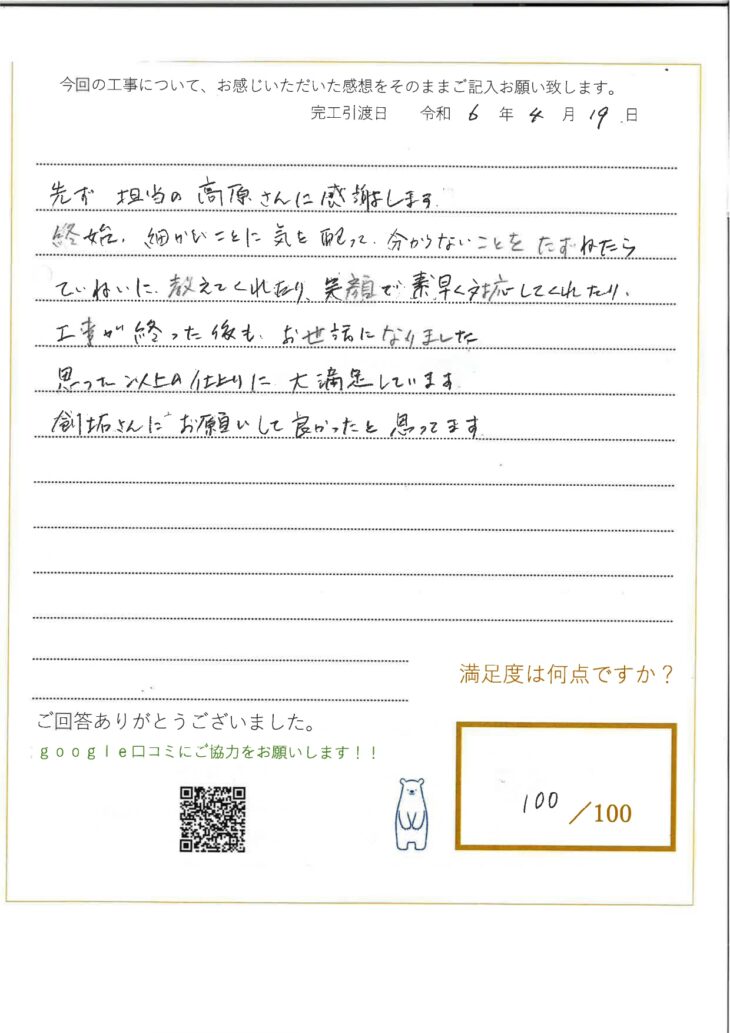 今回の工事について、お感じいただいた感想をそのままご記入お願い致します。
完工引渡日 令和 6 年 4 月 19 日
先ず 担当の高原さんに感謝します
終始、細かいことに気を配って、分からないことをたずねたら
ていねいに、教えてくれたり、笑顔で素早く対応してくれたり、
工事が終った後も、お世話になりました
思った以上の仕上りに 大満足しています
創拓さんに お願いして良かったと思ってます
満足度は何点ですか？
ご回答ありがとうございました。
google口コミにご協力をお願いします！！
100／100